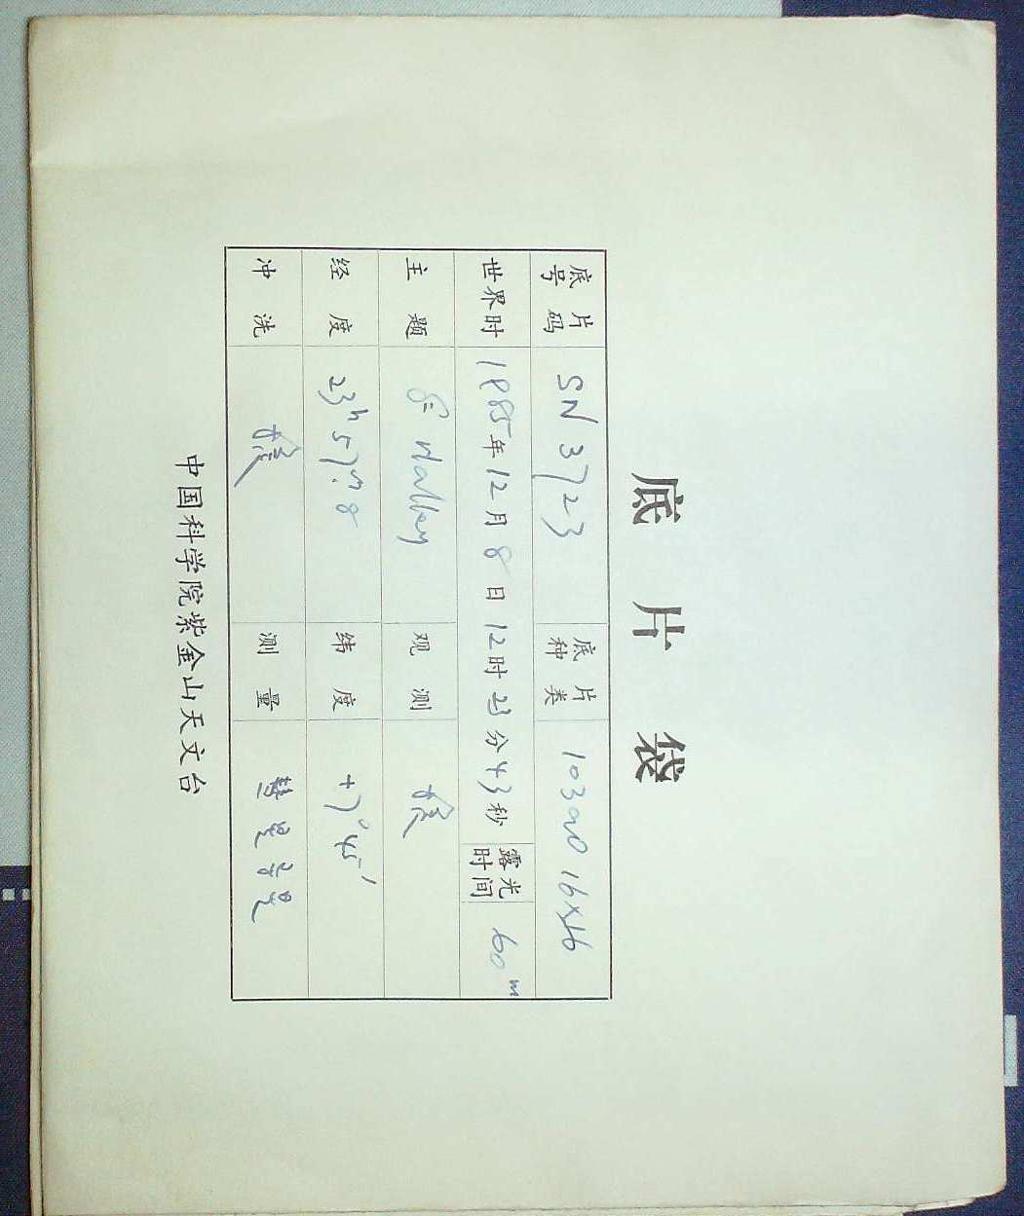 底片袋
底片号码 SN 3723 底片种类 103aO 16×16
世界时 1985年12月8日12时23分43秒 露光时间 60m
主题 Halley 观测
经度 23h57m.8 纬度 +7°45′
冲洗 测量 彗星
中国科学院紫金山天文台